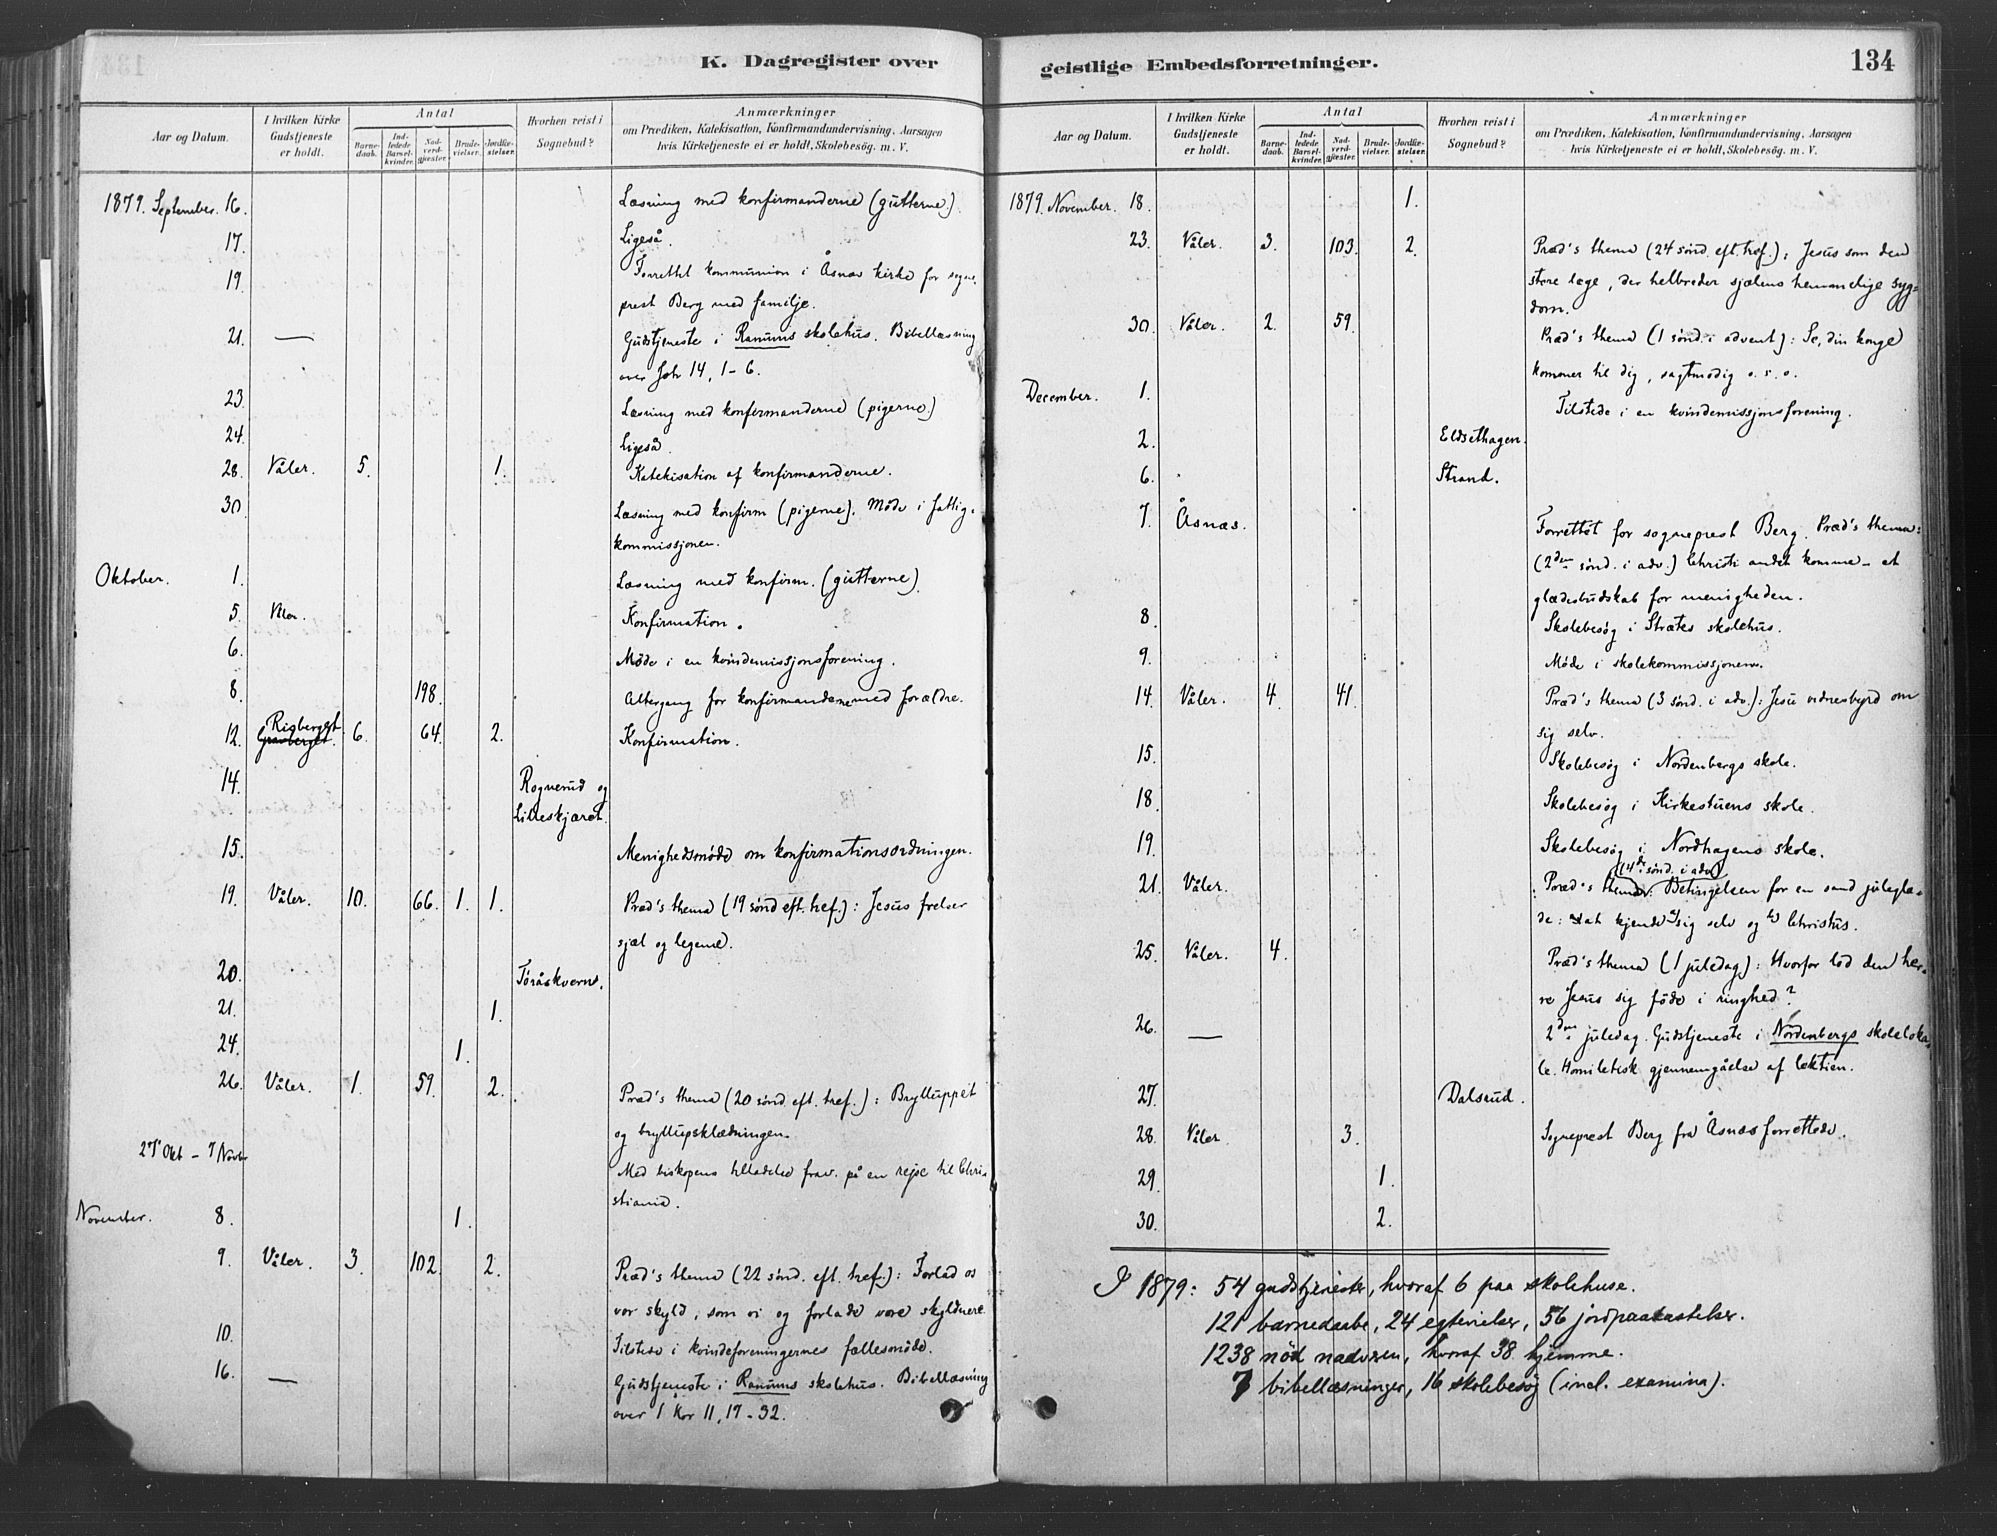 K. Dagregister over
Aar og Datum.
I hvilken Kirke Gudstjeneste er holdt.
Antal
Barnedaab.
Indledede Barselkvinder.
Nadverdgjester.
Brudevielser.
Jordfæstelser.
Hvorhen reist i Sognebud?
Anmærkninger
om Prædiken, Katekisation, Konfirmandundervisning, Aarsagen
hvis Kirketjeneste ei er holdt, Skolebesøg. m. V.
1879. September. 16. Læsning med konfirmanderne (gutterne).
17. Ligeså.
19. Forrettet kommunion i Åsnæs kirke for sogne-
prest Berg med familje.
21. — Gudstjeneste i Ranums skolehus. Bibellæsning
over Joh 14, 1-6.
23. Læsning med konfirmanderne (pigerne)
24. Ligeså.
28. Våler. 5. 1. Katekisation af konfirmanderne.
30. Læsning med konfirm (pigerne). Møde i fattig-
kommissjonen.
Oktober. 1. Læsning med konfirm. (gutterne).
5. Våler. Konfirmation.
6. Møde i en kvindemissjonsforening.
8. 198. Altergang for konfirmanderne med forældre.
Risberget
12. Gravberget. 6. 64. 2. Konfirmation.
14. Rognerud og
Lilleskjæret.
15. Menighedsmøde om konfirmationsordningen.
19. Våler. 10. 66. 1. 1. Præd's thema (19 sønd eft. tref.): Jesus frelser
sjæl og legeme.
20. Toråskvern.
21. 1.
24. 1.
26. Våler. 1. 59. 2. Præd's thema (20 sønd. eft. tref.): Brylluppet
og bryllupsklædningen.
27 Okt - 7 Novbr Med biskopens tilladelse frav. på en rejse til Chri-
stiania.
November. 8. 1.
9. Våler. 3. 102. 2. Præd's thema (22 sønd. eft. tref.): Forlad os
vor skyld, som vi og forlade vore skyldnere.
10. Tilstede i kvindeforeningernes fællesmøde.
16. — Gudstjeneste i Ranums skolehus. Bibellæsning
over 1 Kor 11, 17-32.
geistlige Embedsforretninger.
134
Aar og Datum.
I hvilken Kirke Gudstjeneste er holdt.
Antal
Barnedaab.
Indledede Barselkvinder.
Nadverdgjester.
Brudevielser.
Jordfæstelser.
Hvorhen reist i Sognebud?
Anmærkninger
om Prædiken, Katekisation, Konfirmandundervisning, Aarsagen
hvis Kirketjeneste ei er holdt, Skolebesøg. m. V.
1879. November. 18. 1.
23. Våler. 3. 103. 2. Præd's thema (24 sønd. eft. tref.): Jesus som den
store læge, der helbreder sjælens hemmelige syg-
dom.
30. Våler. 2. 59. Præd's thema (1 sønd. i advent): Se, din konge
kommer til dig, sagtmodig o. s. v.
December. 1. Tilstede i en kvindemissjonsforening.
2. Eldsethagen.
6. Strand.
7. Åsnæs. Forrettet for sogneprest Berg. Præd's thema:
(2den sønd. i adv.) Christi andet komme - et
glædesbudskab for menigheden.
8. Skolebesøg i Strætes skolehus.
9. Møde i skolekommissjonen.
14. Våler. 4. 41. Præd's thema (3 sønd. i adv.): Jesu vidnesbyrd om
sig selv.
15. Skolebesøg i Nordenbergs skole.
18. Skolebesøg i Kirkestuens skole.
19. Skolebesøg i Nordhagens skole.
(4de sønd. i adv)
21. Våler. Præd's thema: Betingelsen for en sand juleglæ-
de: at kjende sig selv og Christus.
25. Våler. 4. Præd's thema (1 juledag): Hvorfor lod den her-
re Jesus sig føde i ringhed?
26. — 2den juledag. Gudstjeneste i Nordenbergs skoleloka-
le. Homiletisk gjennemgåelse af lektien.
27. Dalsrud.
28. Våler 3. Sogneprest Berg fra Åsnæs forrettede.
29. 1.
30. 2.
I 1879: 54 gudstjenester, hvoraf 6 paa skolehuse.
121 barnedaabe, 24 egtevielser, 56 jordpaakastelser.
1238 nød nadveren, hvoraf 38 hjemme.
7 bibellæsninger, 16 skolebesøg (incl. examina).